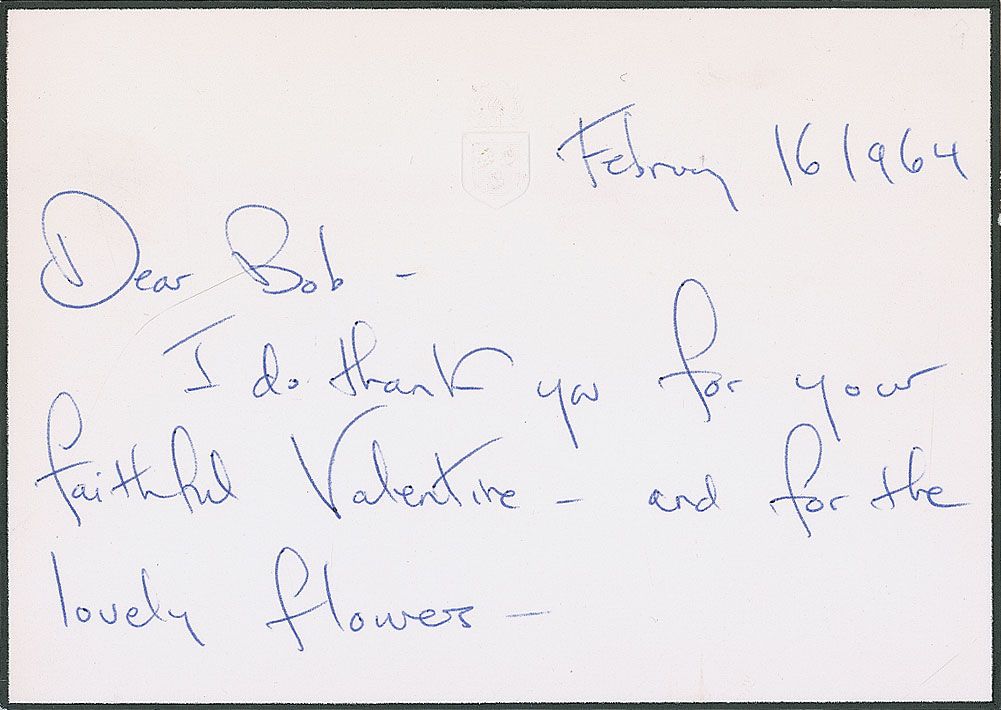 February 16 1964
Dear Bob -
I do thank you for your
faithful Valentine - and for the
lovely flowers -